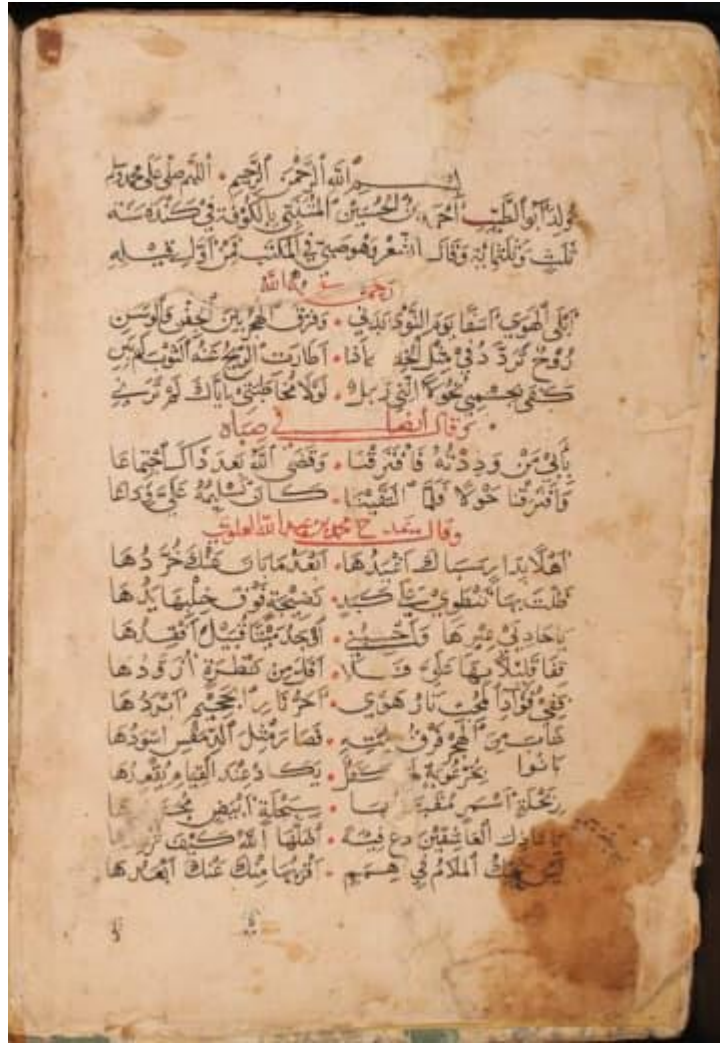 بسم الله الرحمن الرحيم • اللهم صل على محمد وسلم
ولد أبو الطيب أحمد بن الحسين المتنبي بالكوفة في كندة سنة
ثلث وثلثماية وقال الشعر وهو صبي في المكتب فمن أول قيله
رحمه الله
أبلى الهوى أسفا يوم النوى بدني • وفرق الهجر بين الجفن والوسن
روح تردد في مثل الخلال إذا • أطارت الريح عنه الثوب لم يبن
كفى بجسمي نحولا أنني رجل • لولا مخاطبتي إياك لم ترني
وقال أيضا في صباه
بأبي من وددته فافترقنا • وقضى الله بعد ذاك اجتماعا
وافترقنا حولا فلما التقينا • كان تسليمه علي وداعا
وقال يمدح محمد بن عبيد الله العلوي
أهلا بدار سباك أغيدها • أبعد ما بان عنك خردها
ظلت بها تنطوي على كبد • نضيجة فوق خلبها يدها
يا حاديي عيرها وأحسبني • أوجد ميتا قبيل أفقدها
قفا قليلا بها علي فلا • أقل من نظرة أزودها
ففي فؤاد المحب نار هوى • أحر نار الجحيم أبردها
شاب من الهجر فرق لمته • فصار مثل الدمقس أسودها
بانوا بخرعوبة لها كفل • يكاد عند القيام يقعدها
ربحلة أسمر مقبلها • سبحلة أبيض مجردها
يا عاذل العاشقين دع فئة • أضلها الله كيف ترشدها
ليس يحيك الملام في همم • أقربها منك عنك أبعدها